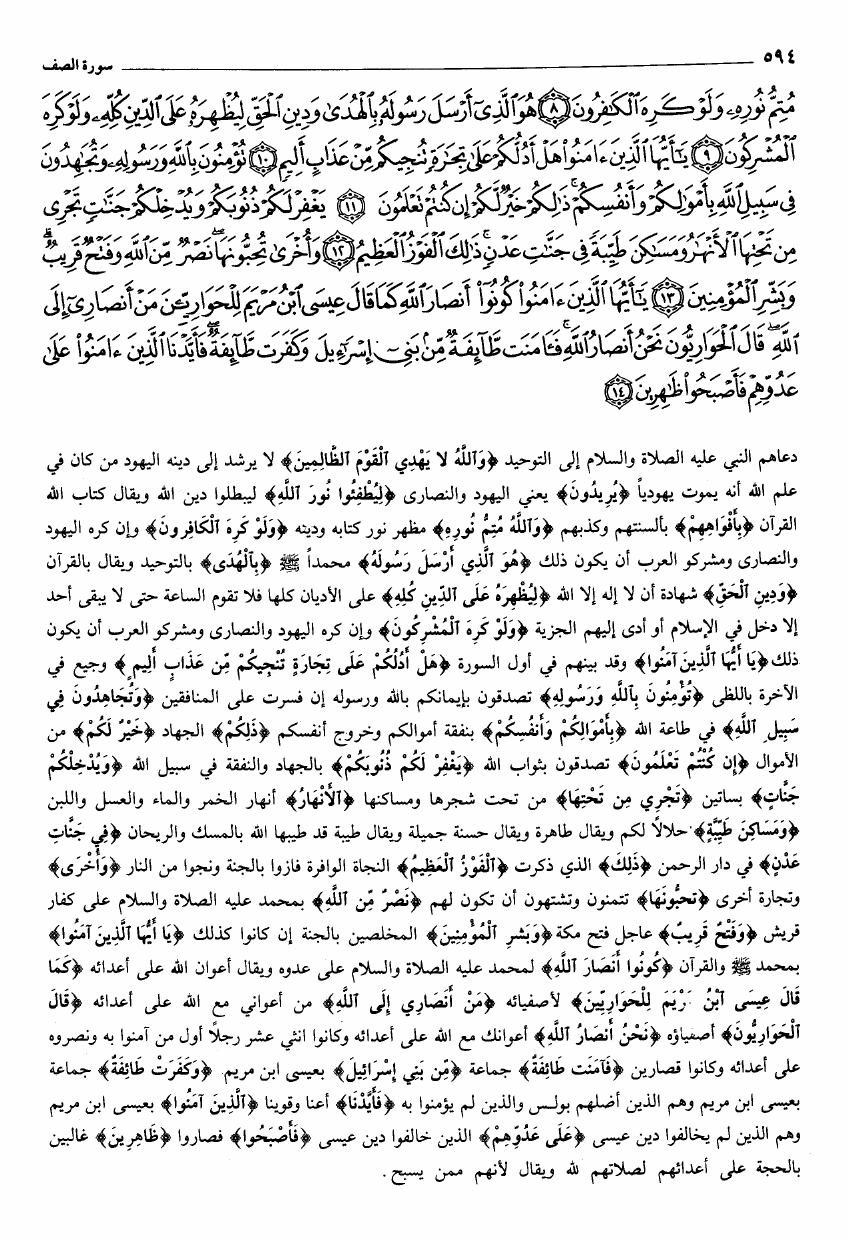 ٥٩٤ سورة الصف
مُتِمُّ نُورِهِۦ وَلَوْ كَرِهَ ٱلْكَـٰفِرُونَ ٨ هُوَ ٱلَّذِىٓ أَرْسَلَ رَسُولَهُۥ بِٱلْهُدَىٰ وَدِينِ ٱلْحَقِّ لِيُظْهِرَهُۥ عَلَى ٱلدِّينِ كُلِّهِۦ وَلَوْ كَرِهَ
ٱلْمُشْرِكُونَ ٩ يَـٰٓأَيُّهَا ٱلَّذِينَ ءَامَنُوا۟ هَلْ أَدُلُّكُمْ عَلَىٰ تِجَـٰرَةٍ تُنجِيكُم مِّنْ عَذَابٍ أَلِيمٍ ١٠ تُؤْمِنُونَ بِٱللَّهِ وَرَسُولِهِۦ وَتُجَـٰهِدُونَ
فِى سَبِيلِ ٱللَّهِ بِأَمْوَٰلِكُمْ وَأَنفُسِكُمْ ۚ ذَٰلِكُمْ خَيْرٌ لَّكُمْ إِن كُنتُمْ تَعْلَمُونَ ١١ يَغْفِرْ لَكُمْ ذُنُوبَكُمْ وَيُدْخِلْكُمْ جَنَّـٰتٍ تَجْرِى
مِن تَحْتِهَا ٱلْأَنْهَـٰرُ وَمَسَـٰكِنَ طَيِّبَةً فِى جَنَّـٰتِ عَدْنٍ ۚ ذَٰلِكَ ٱلْفَوْزُ ٱلْعَظِيمُ ١٢ وَأُخْرَىٰ تُحِبُّونَهَا ۖ نَصْرٌ مِّنَ ٱللَّهِ وَفَتْحٌ قَرِيبٌ ۗ
وَبَشِّرِ ٱلْمُؤْمِنِينَ ١٣ يَـٰٓأَيُّهَا ٱلَّذِينَ ءَامَنُوا۟ كُونُوٓا۟ أَنصَارَ ٱللَّهِ كَمَا قَالَ عِيسَى ٱبْنُ مَرْيَمَ لِلْحَوَارِيِّـۧنَ مَنْ أَنصَارِىٓ إِلَى
ٱللَّهِ ۖ قَالَ ٱلْحَوَارِيُّونَ نَحْنُ أَنصَارُ ٱللَّهِ ۖ فَـَٔامَنَت طَّآئِفَةٌ مِّنۢ بَنِىٓ إِسْرَٰٓءِيلَ وَكَفَرَت طَّآئِفَةٌ ۖ فَأَيَّدْنَا ٱلَّذِينَ ءَامَنُوا۟ عَلَىٰ
عَدُوِّهِمْ فَأَصْبَحُوا۟ ظَـٰهِرِينَ ١٤
دعاهم النبي عليه الصلاة والسلام إلى التوحيد ﴿وَٱللَّهُ لَا يَهْدِي ٱلْقَوْمَ ٱلظَّالِمِينَ﴾ لا يرشد إلى دينه اليهود من كان في
علم الله أنه يموت يهودياً ﴿يُرِيدُونَ﴾ يعني اليهود والنصارى ﴿لِيُطْفِئُوا نُورَ ٱللَّهِ﴾ ليبطلوا دين الله ويقال كتاب الله
القرآن ﴿بِأَفْوَاهِهِمْ﴾ بألسنتهم وكذبهم ﴿وَٱللَّهُ مُتِمُّ نُورِهِ﴾ مظهر نور كتابه ودينه ﴿وَلَوْ كَرِهَ ٱلْكَافِرُونَ﴾ وإن كره اليهود
والنصارى ومشركو العرب أن يكون ذلك ﴿هُوَ ٱلَّذِي أَرْسَلَ رَسُولَهُ﴾ محمداً ﷺ ﴿بِٱلْهُدَى﴾ بالتوحيد ويقال بالقرآن
﴿وَدِينِ ٱلْحَقِّ﴾ شهادة أن لا إله إلا الله ﴿لِيُظْهِرَهُ عَلَى ٱلدِّينِ كُلِهِ﴾ على الأديان كلها فلا تقوم الساعة حتى لا يبقى أحد
إلا دخل في الإسلام أو أدى إليهم الجزية ﴿وَلَوْ كَرِهَ ٱلْمُشْرِكُونَ﴾ وإن كره اليهود والنصارى ومشركو العرب أن يكون
ذلك ﴿يَا أَيُّهَا ٱلَّذِينَ آمَنُوا﴾ وقد بينهم في أول السورة ﴿هَلْ أَدُلُكُمْ عَلَى تِجَارَةٍ تُنْجِيكُمْ مِّن عَذَابٍ أَلِيمٍ﴾ وجيع في
الآخرة باللظى ﴿تُؤْمِنُونَ بِٱللَّهِ وَرَسُولِهِ﴾ تصدقون بإيمانكم بالله ورسوله إن فسرت على المنافقين ﴿وَتُجَاهِدُونَ فِي
سَبِيلِ ٱللَّهِ﴾ في طاعة الله ﴿بِأَمْوَالِكُمْ وَأَنْفُسِكُمْ﴾ بنفقة أموالكم وخروج أنفسكم ﴿ذَلِكُمْ﴾ الجهاد ﴿خَيْرٌ لَكُمْ﴾ من
الأموال ﴿إِن كُنْتُمْ تَعْلَمُونَ﴾ تصدقون بثواب الله ﴿يَغْفِرْ لَكُمْ ذُنُوبَكُمْ﴾ بالجهاد والنفقة في سبيل الله ﴿وَيُدْخِلْكُمْ
جَنَّاتٍ﴾ بساتين ﴿تَجْرِي مِن تَحْتِهَا﴾ من تحت شجرها ومساكنها ﴿ٱلْأَنْهَارُ﴾ أنهار الخمر والماء والعسل واللبن
﴿وَمَسَاكِنَ طَيِّبَةً﴾ حلالاً لكم ويقال طاهرة ويقال حسنة جميلة ويقال طيبة قد طيبها الله بالمسك والريحان ﴿فِي جَنَّاتِ
عَدْنٍ﴾ في دار الرحمن ﴿ذَلِكَ﴾ الذي ذكرت ﴿ٱلْفَوْزُ ٱلْعَظِيمُ﴾ النجاة الوافرة فازوا بالجنة ونجوا من النار ﴿وَأُخْرَى﴾
وتجارة أخرى ﴿تحبُّونَهَا﴾ تتمنون وتشتهون أن تكون لهم ﴿نَصْرٌ مِّنَ ٱللَّهِ﴾ بمحمد عليه الصلاة والسلام على كفار
قريش ﴿وَفَتْحٌ قَرِيبٌ﴾ عاجل فتح مكة ﴿وَبَشِّرِ ٱلْمُؤْمِنِينَ﴾ المخلصين بالجنة إن كانوا كذلك ﴿يَا أَيُّهَا ٱلَّذِينَ آمَنُوا﴾
بمحمد ﷺ والقرآن ﴿كُونُوا أَنصَارَ ٱللَّهِ﴾ لمحمد عليه الصلاة والسلام على عدوه ويقال أعوان الله على أعدائه ﴿كَمَا
قَالَ عِيسَى ٱبْنُ مَرْيَمَ لِلْحَوَارِيِّينَ﴾ لأصفيائه ﴿مَنْ أَنصَارِي إِلَى ٱللَّهِ﴾ من أعواني مع الله على أعدائه ﴿قَالَ
ٱلْحَوَارِيُّونَ﴾ أصفياؤه ﴿نَحْنُ أَنصَارُ ٱللَّهِ﴾ أعوانك مع الله على أعدائه وكانوا اثني عشر رجلاً أول من آمنوا به ونصروه
على أعدائه وكانوا قصارين ﴿فَآمَنَت طَائِفَةٌ﴾ جماعة ﴿مِّن بَنِي إِسْرَائِيلَ﴾ بعيسى ابن مريم ﴿وَكَفَرَتْ طَائِفَةٌ﴾ جماعة
بعيسى ابن مريم وهم الذين أضلهم بولس والذين لم يؤمنوا به ﴿فَأَيَّدْنَا﴾ أعنا وقوينا ﴿ٱلَّذِينَ آمَنُوا﴾ بعيسى ابن مريم
وهم الذين لم يخالفوا دين عيسى ﴿عَلَى عَدُوِّهِمْ﴾ الذين خالفوا دين عيسى ﴿فَأَصْبَحُوا﴾ فصاروا ﴿ظَاهِرِينَ﴾ غالبين
بالحجة على أعدائهم لصلاتهم لله ويقال لأنهم ممن يسبح.